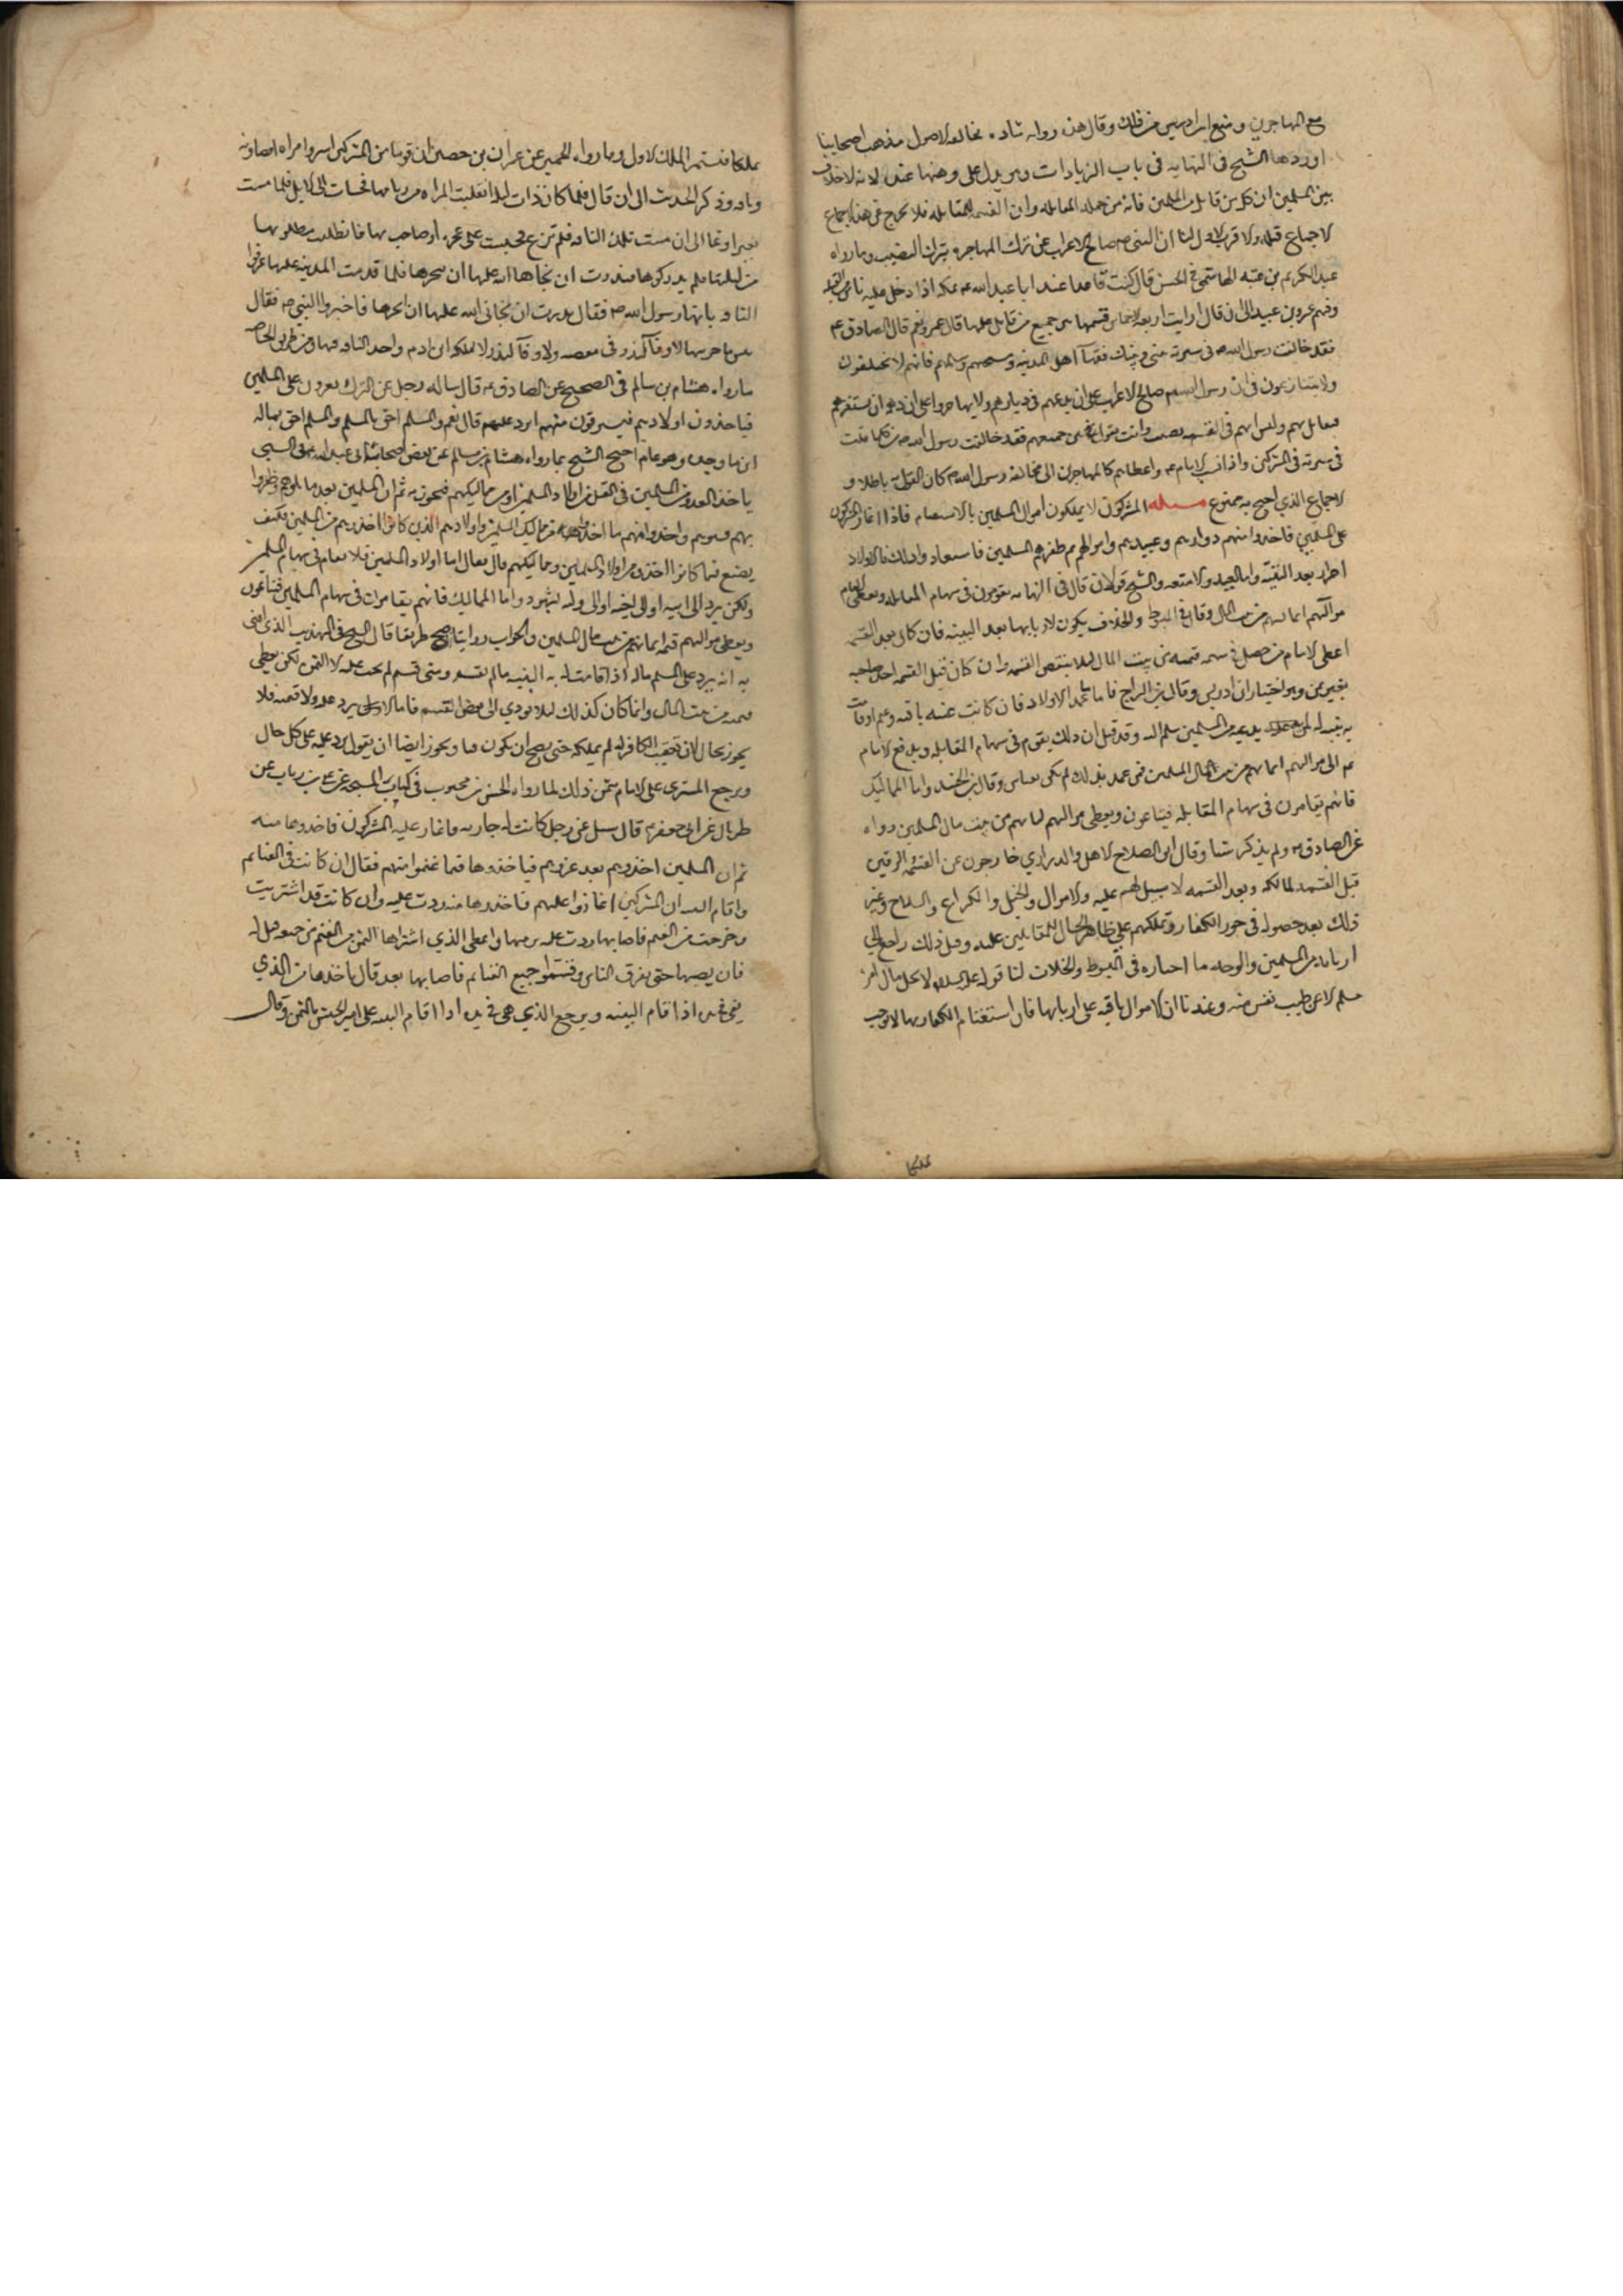 مع المهاجرين ومنع ابن ادريس من ذلك وقال هذه رواية شاذة مخالفة لاصول مذهب اصحابنا
اوردها الشيخ فى النهايه فى باب الزيادات وهو يدل على وهنها عنده لانه لا خلاف
بين المسلمين ان كل من قاتل من المسلمين فانه من جمله المقاتله وان الغنيمه للمقاتله فلا يخرج عن هذا الاجماع
الا جماع مثله والاقرب الاول لنا ان النبى ص صالح الاعراب عن ترك المهاجره بترك النصيب وما رواه
عبد الكريم بن عتبه الهاشمى فى الحسن قال كنت قاعدا عند ابا عبد الله ع بمكه اذ دخل عليه ناس من المعتزله
وفيهم عمرو بن عبيد الى ان قال ارايت الاربعه اخماس تقسمها بين جميع من قاتل عليها قال عمرو نعم قال الصادق ع
فقد خالفت رسول الله ص فى سيرته بينى وبينك فقهآ اهل المدينه ومشيختهم وسلهم فانهم لا يختلفون
ولا يتنازعون فى ان رسول الله صلعم صالح الاعراب على ان يدعهم فى ديارهم ولا يهاجروا على ان دهمه ان يستفزهم
فيقاتل بهم وليس لهم فى الغنيمه نصيب وانت تقول بين جميعهم فقد خالفت رسول الله ص فى كلما قلت
فى سيرته فى المشركين واذا نسب الامام ع اعطاهم كالمهاجرين الى مخالفة رسول الله ص كان القول به باطلا و
الاجماع الذي احتج به ممنوع مسئله المشركون لا يملكون اموال المسلمين بالاستغنام فاذا اغار المشركون
على المسلمين فاخذوا منهم ذراريهم وعبيدهم واموالهم ثم ظفر بهم المسلمين فاستعادوا ذلك فالاولاد
احرار بعد البيّنه واما العبيد والامتعه فللشيخ قولان قال فى النهايه يقومون فى سهام المقاتله ويعطى الامام
مواليهم اثمانهم من بيت المال وقال فى المبسوط والخلاف يكون لاربابها بعد البينه فان كان بعد القسمه
اعطى الامام من حصل فى سهمه قيمته من بيت المال لئلا ينتقض القسمه وان كان قبل القسمه اخذه صاحبه
بغير ثمن وهو اختيار ابن ادريس وقال ابن البراج فاما ما عدا الاولاد فان كانت عينه باقيه وعم اوقامت
به بينه انه لمن هو بيده من المسلمين سلم اليه وقد قيل ان ذلك يقوم فى سهام المقاتله ويدفع الامام
ع الى مواليهم اثمانهم من بيت مال المسلمين فمن عمل بذلك لم يكن به باس وقال ابن الجنيد واما المماليك
فانهم يقامون فى سهام المقاتله فيباعون ويعطى مواليهم اثمانهم من بيت مال المسلمين رواه
عن الصادق ع ولم يذكر شيا وقال ابو الصلاح الاهل والذراري خارجون عن الغنيمه والرقيق
قبل القسمه لمالكه وبعد القسمه لا سبيل لهم عليه والاموال والخيل والكراع والسلاح وغير
ذلك بعد حصوله فى حوز الكفار وتملكهم على ظاهر الحال للمقاتلين عليه وقبل ذلك راجع الى
اربابه من المسلمين والوجه ما اختاره فى المبسوط والخلاف لنا قوله عليه السلام لا يحل مال امرئ
مسلم الا عن طيب نفس منه وعندنا ان الاموال باقيه على اربابها فان استغنام الكفار بها لا يوجب
تملكها
تملكها فتستمر الملك الاول وما رواه الجمهور عن عمران بن حصين ان قوما من المشركين اسروا امراه انصاريه
وناقه وذكر الحديث الى ان قال فلما كان ذات ليله انفلتت المراه من وثاقها فجاءت الى الابل فلما مست
بعيرا رغا الى ان مست تلك الناقه فلم ترغ فجلست على عجزه او صاحب بها فانطلقت فطلبوها
من ليلتها فلم يدركوها فنذرت ان نجاها الله عليها ان تنحرها فلما قدمت المدينه عليها عرفوا
الناقه بانها ناقة رسول الله ص فقال نذرت ان نجانى الله عليها ان انحرها فاخبروا النبى ص فقال
بئس ما جزيتها لا وفآ لنذر فى معصيه ولا وفآ لنذر لا يملكه ابن ادم واخذ الناقه منها ومن طريق الخاصه
ما رواه هشام بن سالم فى الصحيح عن الصادق ع قال ساله رجل عن الترك يغيرون على المسلمين
فياخذون اولادهم فيسرقون منهم ايرد عليهم قال نعم والمسلم اخو المسلم والمسلم احق بماله
اين ما وجده وهو عام احتج الشيخ بما رواه هشام بن سالم عن بعض اصحابنا عن ابى عبد الله ع فى السبى
ياخذ العدو من المسلمين فى القتل من اولاد المسلمين او من مماليكهم فيحوزونه ثم ان المسلمين بعد ما قاتلوهم ظفروا
بهم فسبوهم واخذوا منهم ما اخذوا من مماليك المسلمين واولادهم الذين كانوا اخذوهم من المسلمين فكيف
يصنع فيما كانوا اخذوه من اولاد المسلمين ومماليكهم قال فقال اما اولاد المسلمين فلا يقام فى سهام المسلمين
ولكن يرد الى ابيه او الى اخيه او الى وليه بشهود واما المماليك فانهم يقامون فى سهام المسلمين فيباعون
ويعطى مواليهم قيمة اثمانهم من بيت مال المسلمين والجواب روايتنا اوضح طريقا قال الشيخ فى التهذيب الذي افتى
به انه يرد على المسلم ماله اذا قامت له به البينه ما لم يقسم ومتى قسم لم يجب عليه الا الثمن لكن يعطى
قيمته من بيت المال وانما كان كذلك لئلا يودي الى نقض القسم فاما ان لا يرد عليه ولا قيمته فلا
يجوز بحال لان تعقب الكافر له لم يملكه حتى يصح ان يكون فيا ويجوز ايضا ان يقول يرد عليه على كل حال
ويرجع المشتري على الامام بثمن ذلك لما رواه الحسن بن محبوب فى كتاب المشيخه عن على بن رياب عن
طربال عن ابى جعفر ع قال سئل عن رجل كانت له جاريه فاغار عليه المشركون فاخذوها منه
ثم ان المسلمين اخذوهم بعد غزوهم فياخذوها فيما غنموا منهم فقال ان كانت فى الغنايم
واقام البينه ان المشركين اغاروا عليهم فاخذوها منه ردت عليه وان كانت قد اشتريت
وخرجت من الغنم فاصابها ردت عليه برمتها واعطى الذي اشتراها الثمن من الغنم من جميعه قيل له
فان يصبها حتى يفرق الناس وقسموا جميع الغنايم فاصابها بعد قال ياخذها من الذي
هى فى يده اذا اقام البينه ويرجع الذي هى فى يده اذا اقام البينه على امير الجيش بالثمن وقال